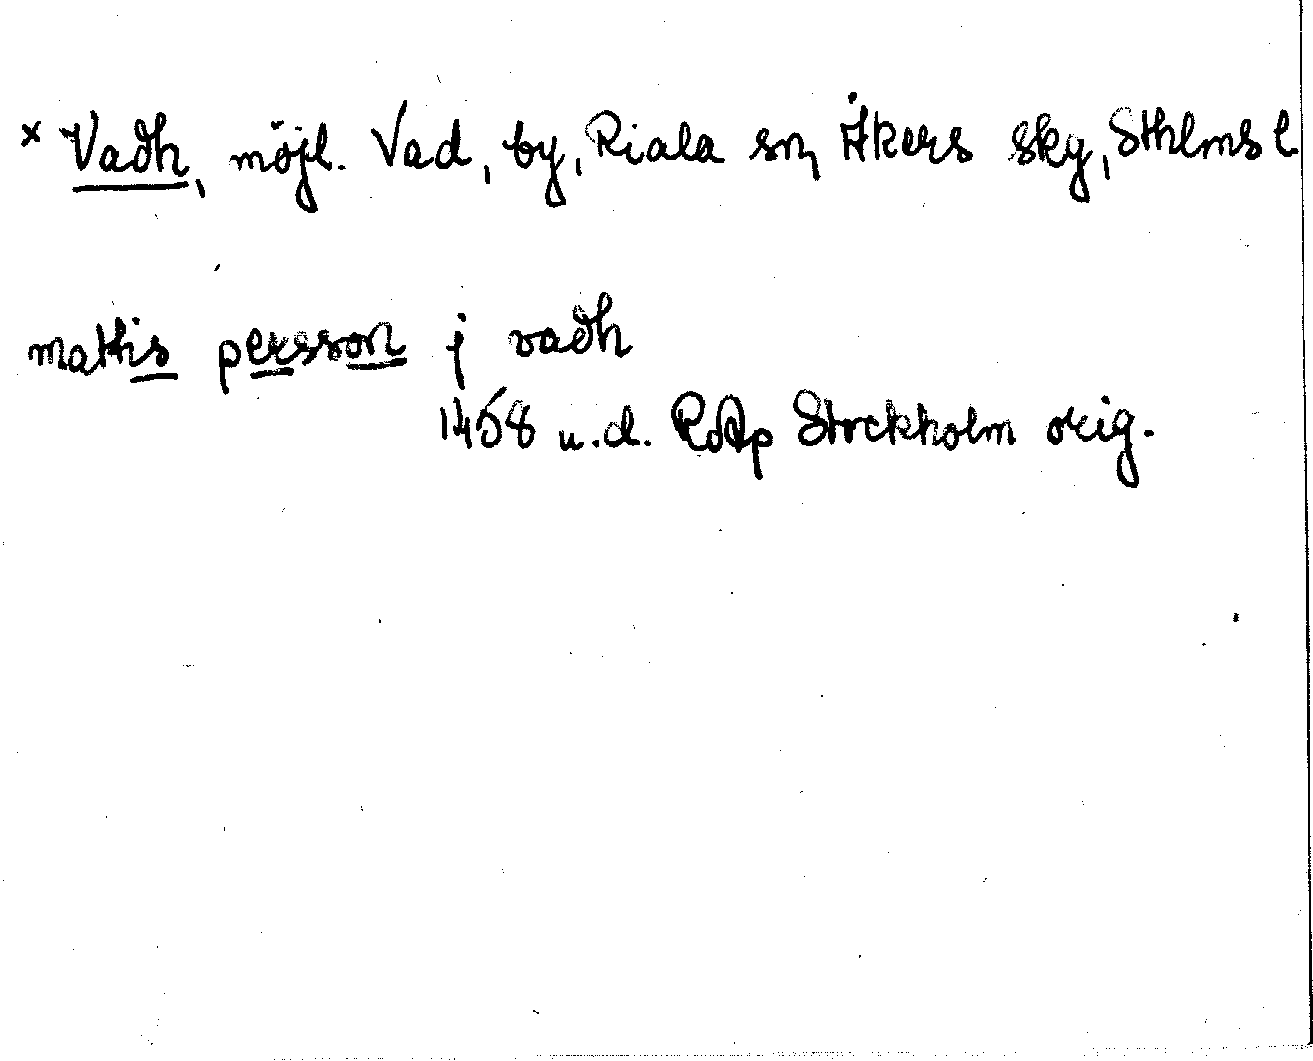 x Vadh, möjl. Vad, by, Riala sn, Åkers sky, Sthlms l
mathis persson j vadh
1458 u.d. RAp Stockholm orig.